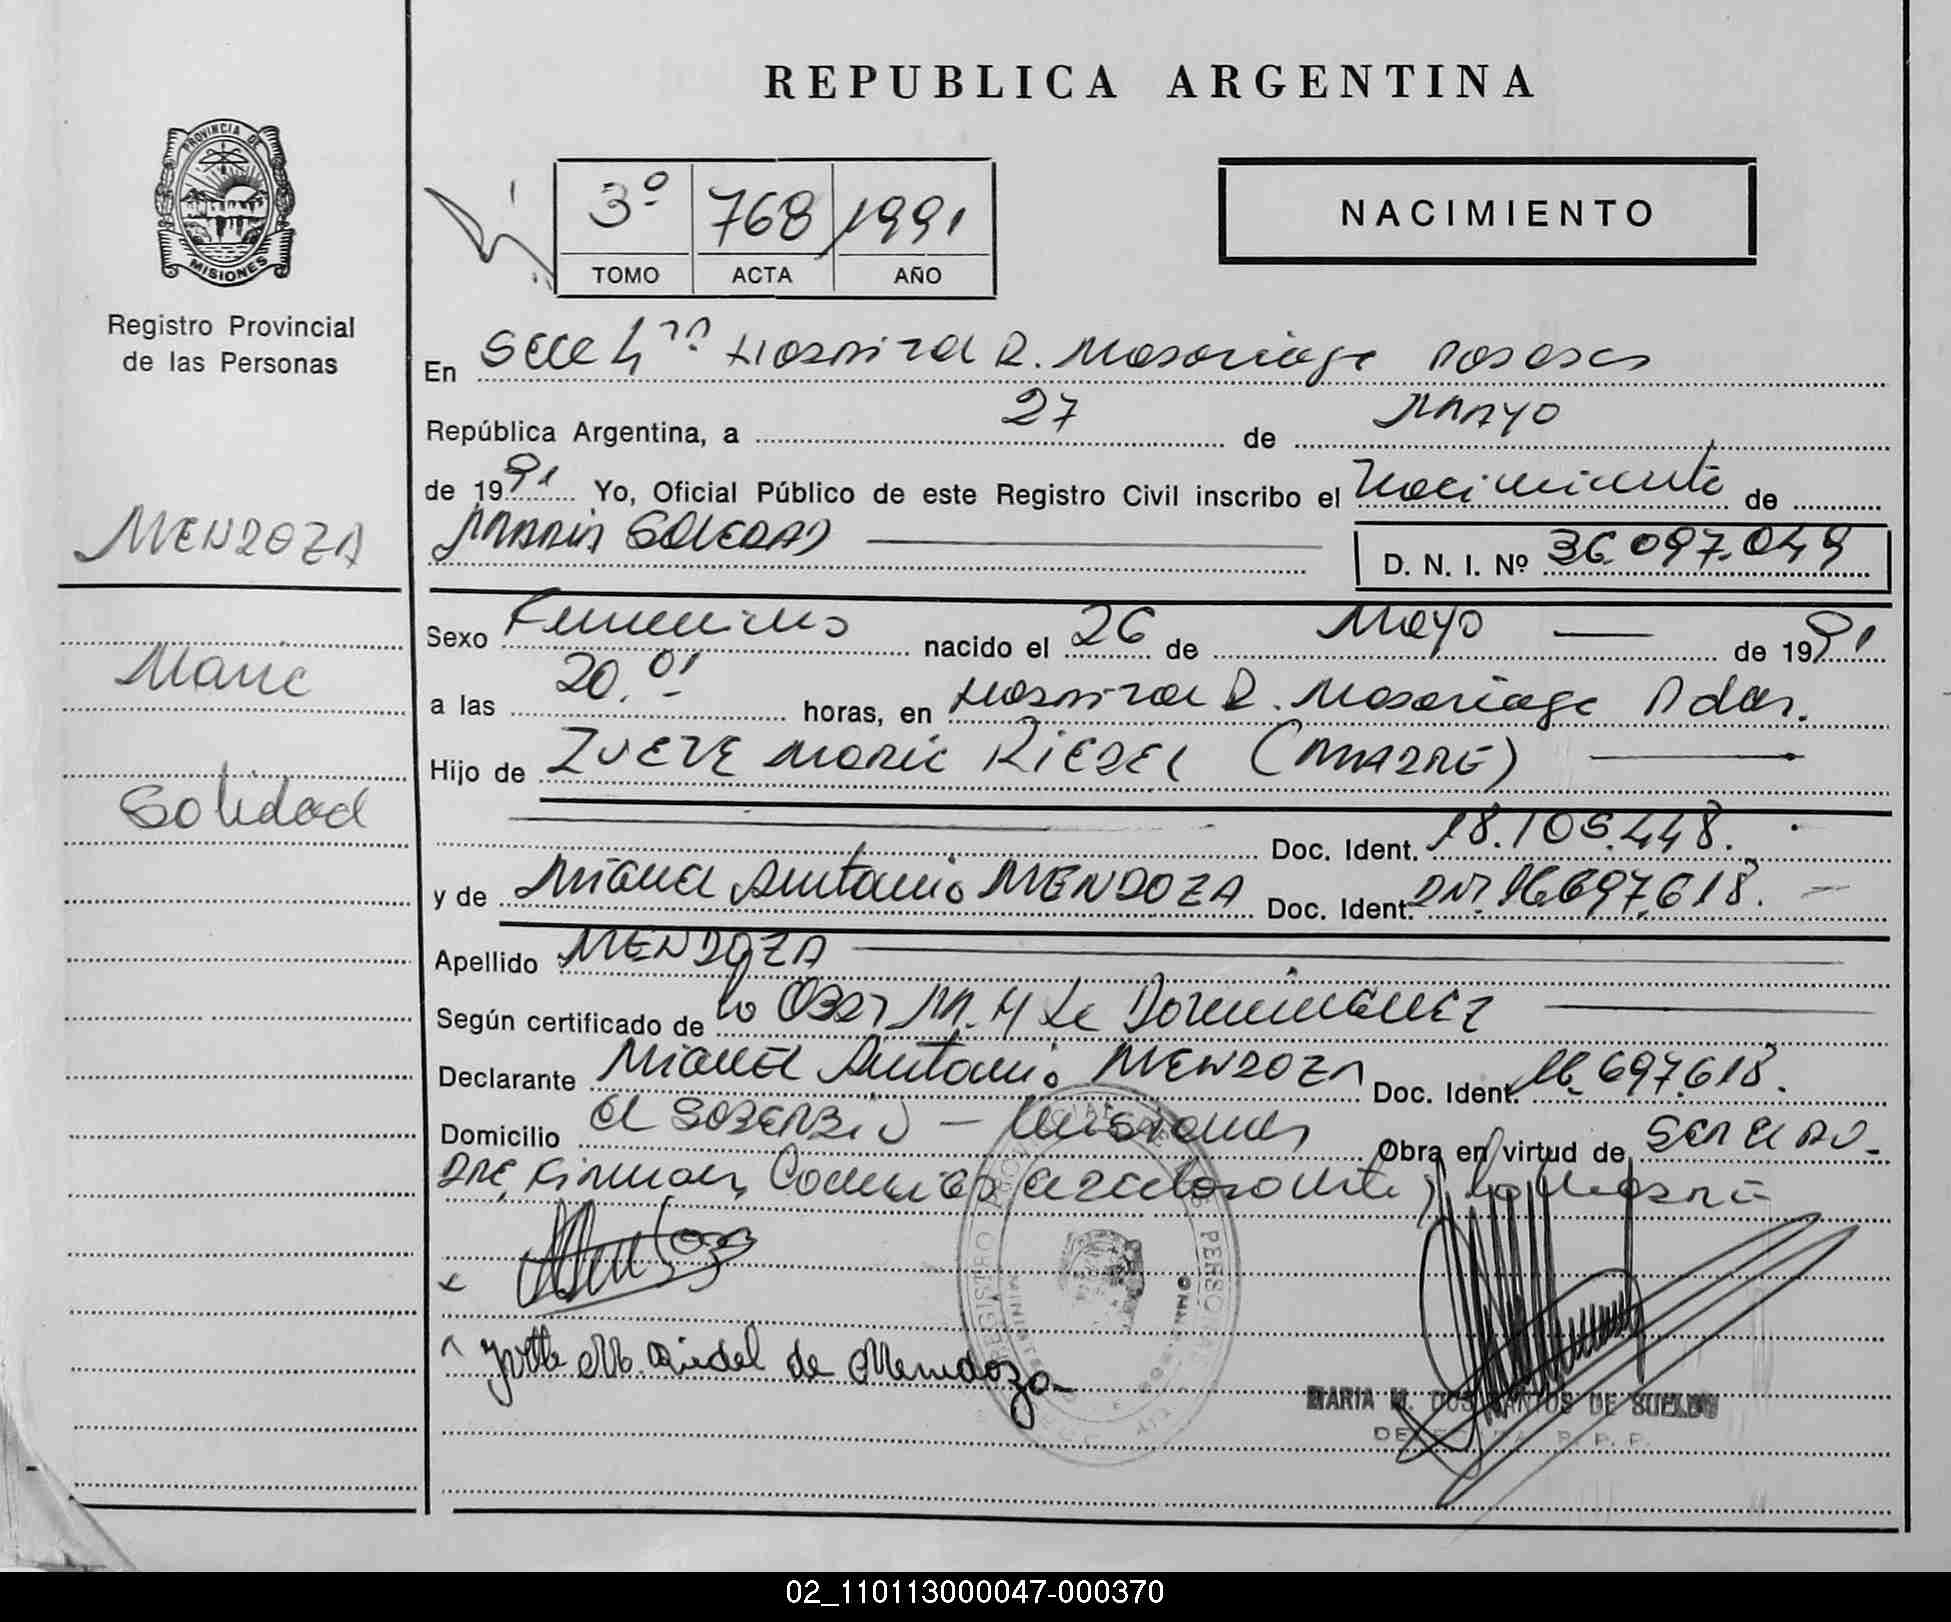 REPUBLICA ARGENTINA
PROVINCIA DE
MISIONES
Registro Provincial
de las Personas
3º 768 1991
TOMO ACTA AÑO
NACIMIENTO
En Secc 4ta Hospital R. Madariaga Posadas
República Argentina, a 27 de MAYO
de 1991 Yo, Oficial Público de este Registro Civil inscribo el Nacimiento de
MARIA SOLEDAD
D. N. I. Nº 36.097.049
MENDOZA
Maria
Soledad
Sexo Femenino nacido el 26 de Mayo de 1991
a las 20.01 horas, en Hospital R. Madariaga Pdas.
Hijo de Maria RIEDEL (MADRE)
Doc. Ident. 18.105.448.
y de Miguel Antonio MENDOZA Doc. Ident. DNI. 16.697.618.
Apellido MENDOZA
Según certificado de la Obst M. H de Dominguez
Declarante Miguel Antonio MENDOZA Doc. Ident. 16.697.618.
Domicilio El SOBERBIO - Misiones Obra en virtud de SER EL PA-
DRE, Firman, Conmigo el declarante y la Madre
Mendoza
Yvette M. Riedel de Mendoza
REGISTRO PROVINCIAL DE LAS PERSONAS
MARIA M. DOS SANTOS DE
DELEGADA R. P. P.
02_110113000047-000370